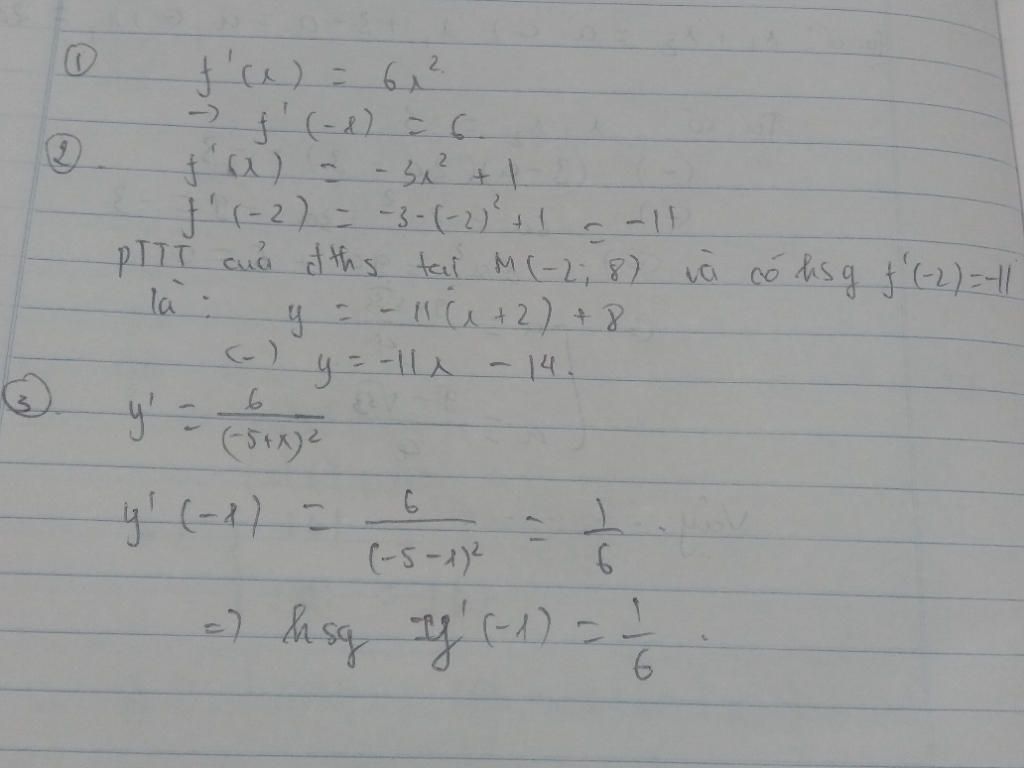 ① f'(x) = 6x²
→ f'(-1) = 6.
②. f'(x) = -3x² + 1
f'(-2) = -3·(-2)² + 1 = -11
PTTT của đths tại M(-2; 8) và có hsg f'(-2) = -11
là: y = -11(x + 2) + 8
(-) y = -11x - 14.
③. y' = 6/(-5+x)²
y'(-1) = 6/(-5-1)² = 1/6.
=> hsg y'(-1) = 1/6.